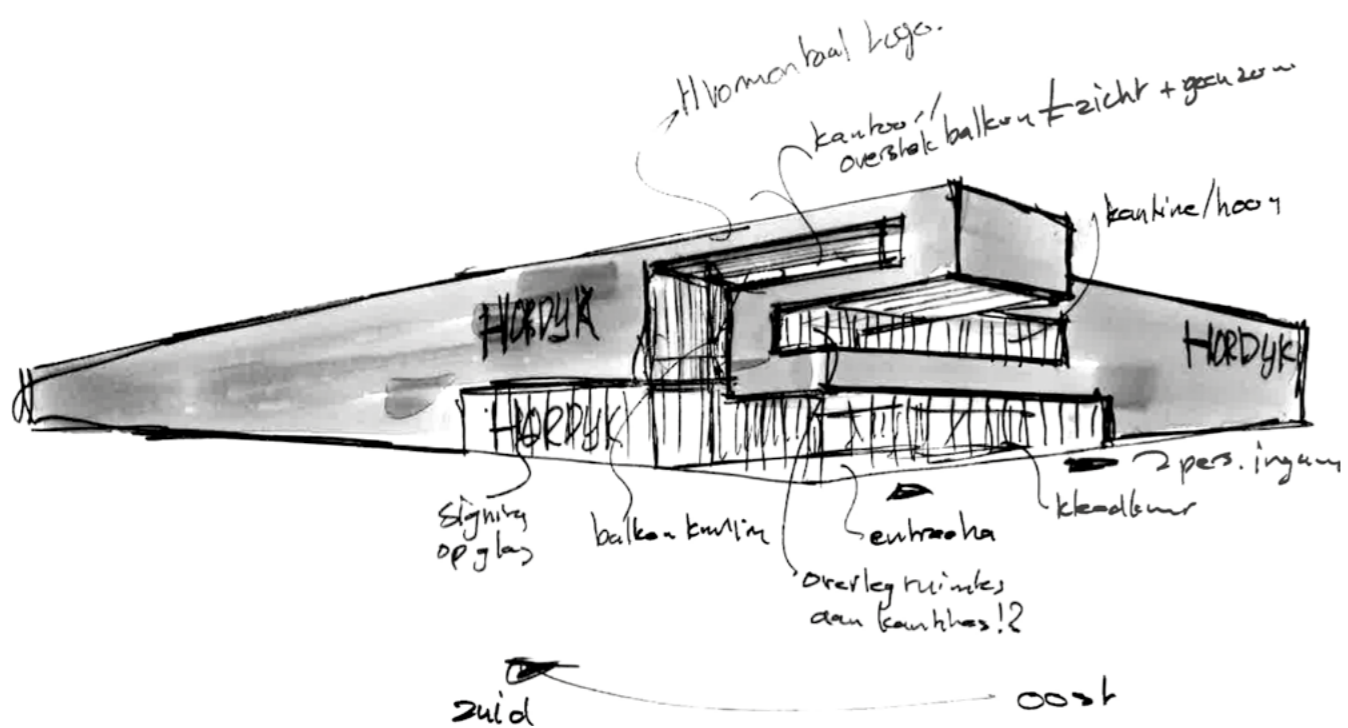 Horizontaal Logo.
kantoor/
overstek balkon zicht + geen zon
kantine/hoog
HORDYK
HORDYK
HORDYK
2 pers. ingang
signing
op glas
balkon kantine
entree
kleed
overleg ruimtes
aan kanthes!?
zuid
oost